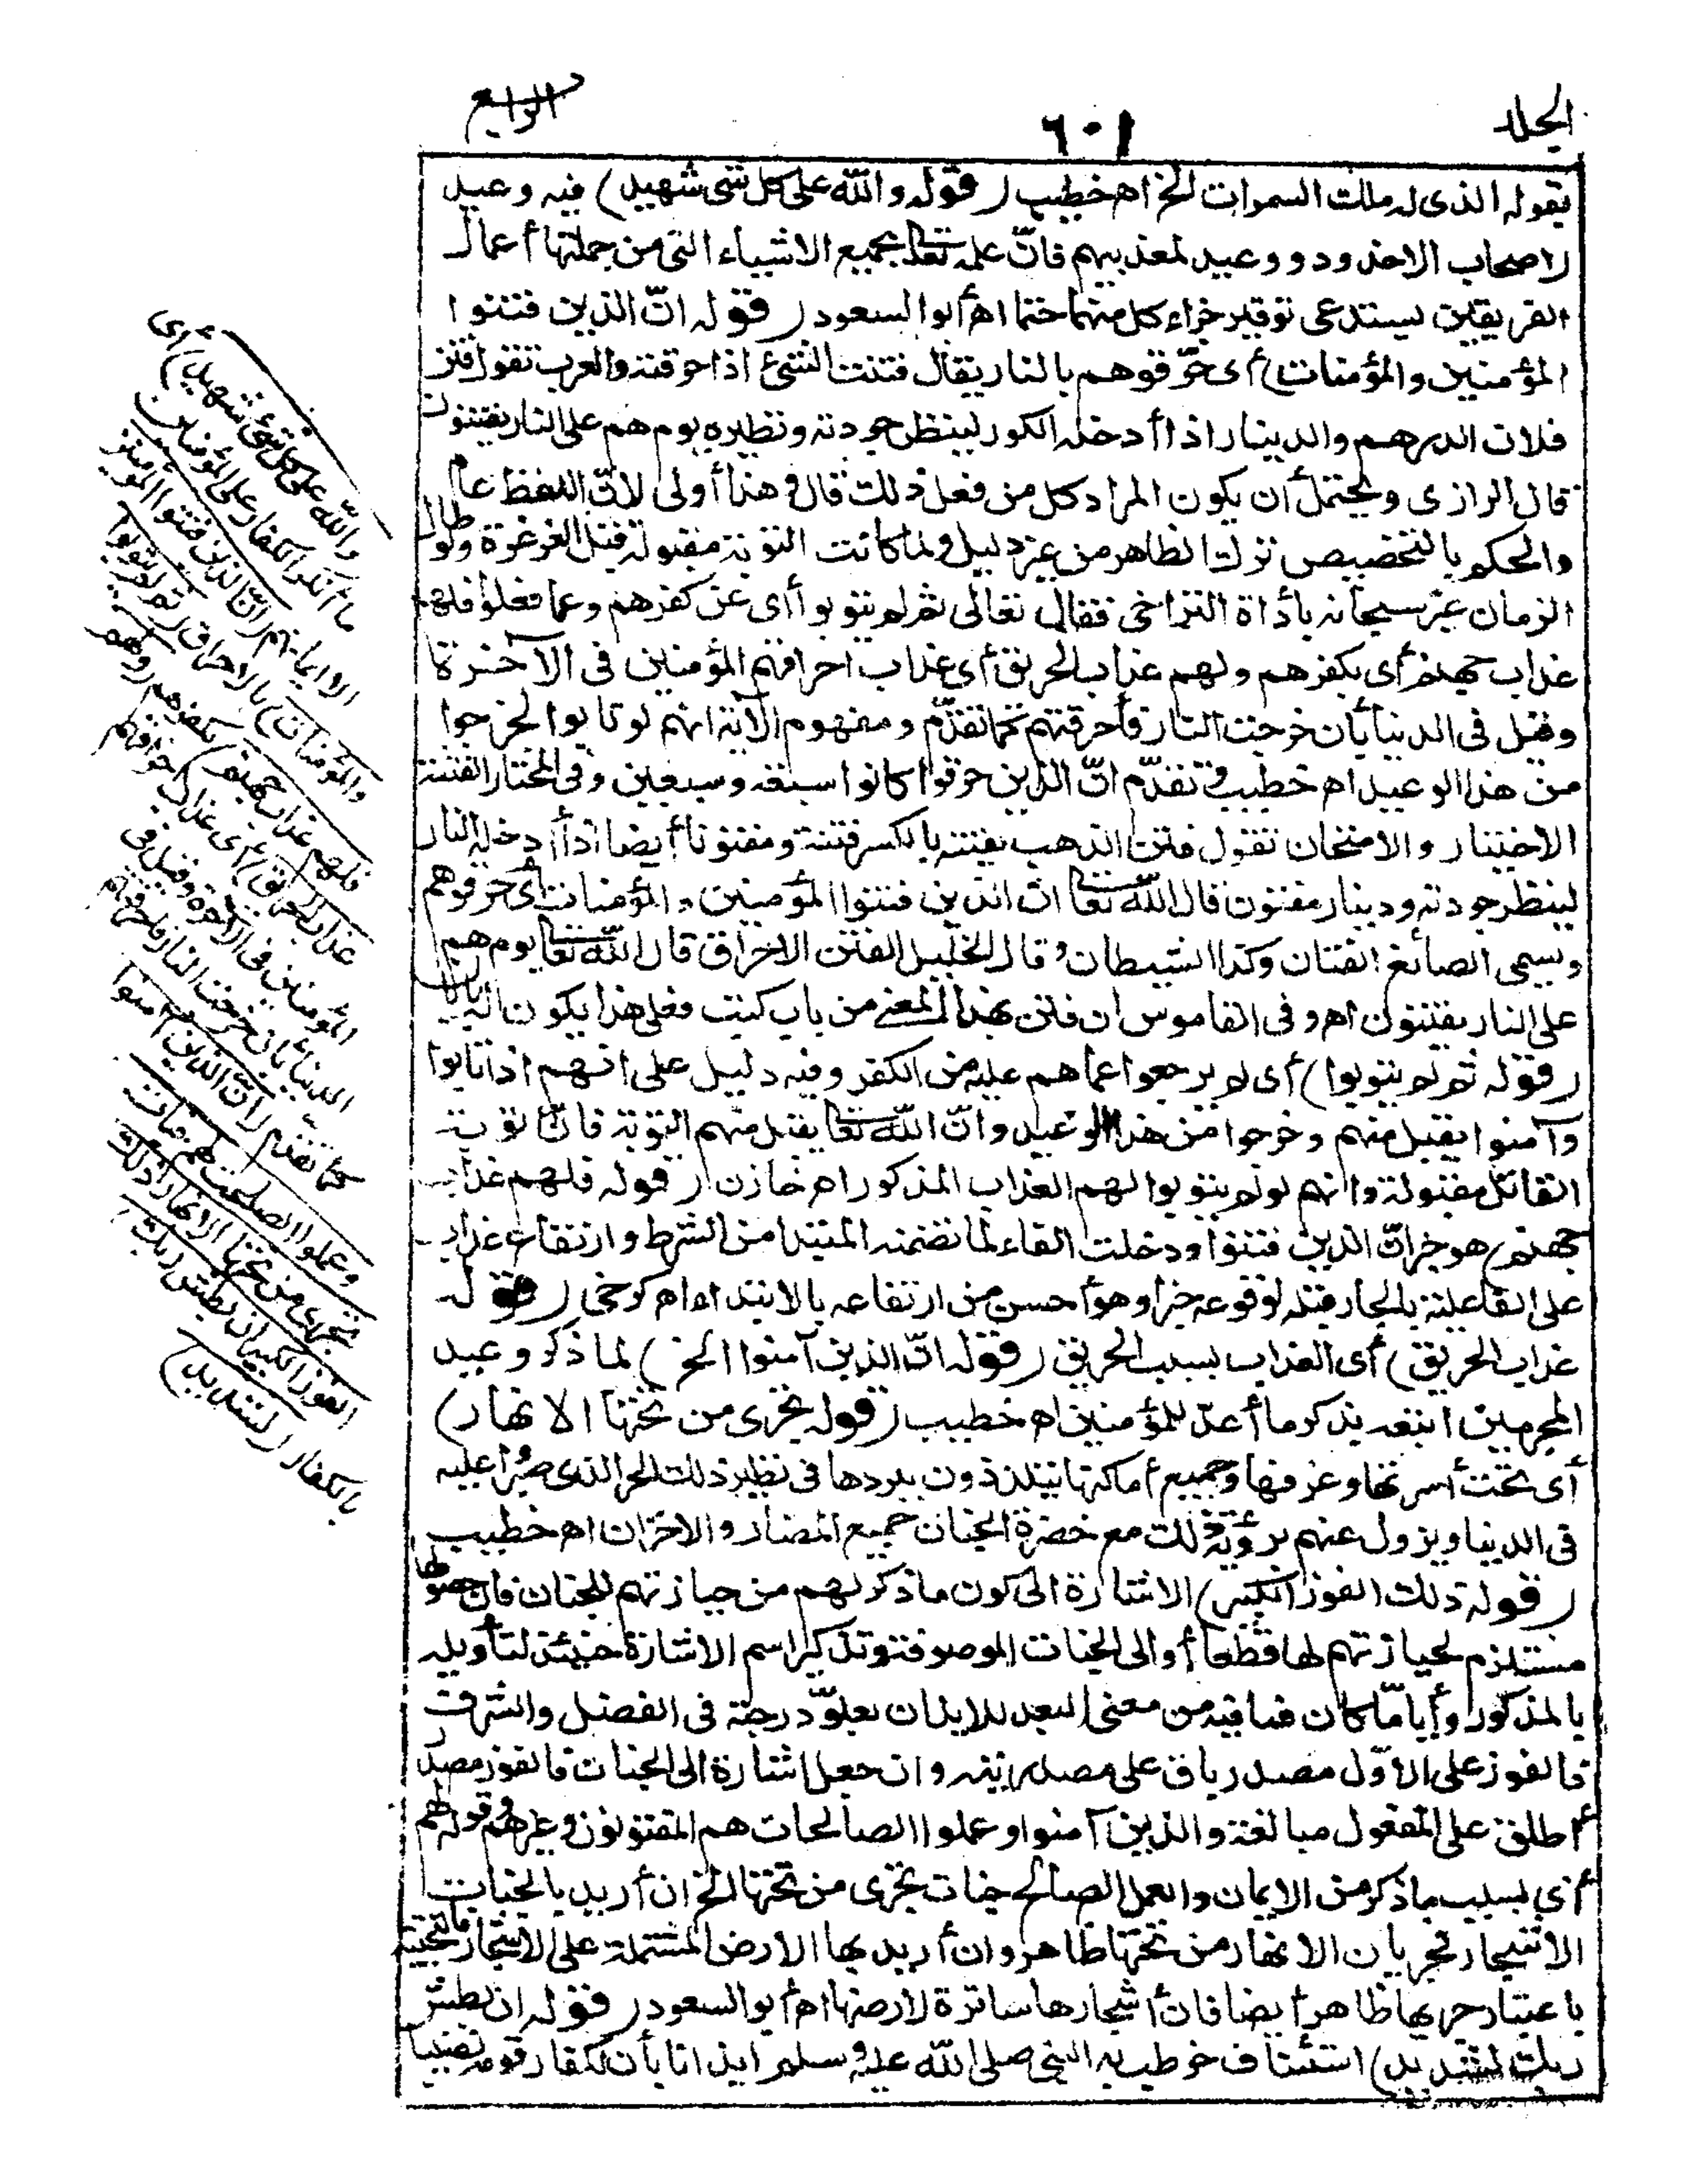 الجلد
٦٠١
الرابع
بقوله الذى له ملك السموات الخ اه خطيب (قوله والله على كل شئ شهيد) فيه وعيد
لاصحاب الاخدود ووعيد لمعذبيهم فانّ علمه تعالى بجميع الاشياء التى من جملتها أعمال
الفريقين يستدعى توفير جزاء كل منهما حتما اه أبو السعود (قوله انّ الذين فتنوا
المؤمنين والمؤمنات) أى حرّقوهم بالنار يقال فتنت الشئ اذا حرقته والعرب تقول فتن
فلان الدرهم والدينار اذا أدخله الكور لينظر جودته ونظيره يوم هم على النار يفتنون
قال الرازى ويحتمل أن يكون المراد كل من فعل ذلك قال وهذا أولى لانّ اللفظ عام
والحكم بالتخصيص ترك الظاهر من غير دليل ولما كانت التوبة مقبولة قبل الغرغرة ولو طال
الزمان عبر سبحانه بأداة التراخى فقال تعالى ثم لم يتوبوا أى عن كفرهم وعما فعلوا فلهم
عذاب جهنم أى بكفرهم ولهم عذاب الحريق أى عذاب احراقهم المؤمنين فى الآخرة
وقيل فى الدنيا بأن خرجت النار فأحرقتهم كما تقدّم ومفهوم الآية انهم لو تابوا لخرجوا
من هذا الوعيد اه خطيب وتقدّم انّ الذين حرقوا كانوا سبعة وسبعين وفى المختار الفتنة
الاختبار والامتحان تقول فتن الذهب يفتنه بالكسر فتنة ومفتونا أيضا اذا أدخله النار
لينظر جودته ودينار مفتون قال الله تعالى انّ الذين فتنوا المؤمنين والمؤمنات أى حرقوهم
ويسمى الصائغ الفتان وكذا الشيطان وقال الخليل الفتن الاحراق قال الله تعالى يوم هم
على النار يفتنون اه وفى القاموس ان فتن بهذا المعنى من باب كتب فعلى هذا يكون له بابان
(قوله ثم لم يتوبوا) أى لم يرجعوا عما هم عليه من الكفر وفيه دليل على انهم اذا تابوا
وآمنوا يقبل منهم وخرجوا من هذا الوعيد وانّ الله تعالى يقبل منهم التوبة فانّ توبة
القاتل مقبولة وانهم لو لم يتوبوا لهم العذاب المذكور اه خازن (قوله فلهم عذاب
جهنم) هو خبر انّ الذين فتنوا ودخلت الفاء لما تضمنه المبتدا من الشرط وارتفاع عذاب
على الفاعلية بالجار قبله لوقوعه خبرا وهو أحسن من ارتفاعه بالابتداء اه كرخى (قوله
عذاب الحريق) أى العذاب بسبب الحريق (قوله انّ الذين آمنوا الخ) لما ذكر وعيد
المجرمين اتبعه بذكر ما أعدّ للمؤمنين اه خطيب (قوله تجرى من تحتها الانهار)
أى تحت أسرتها وغرفها وجميع أماكنها يتلذذون ببردها فى نظير ذلك الحر الذى صبروا عليه
فى الدنيا ويزول عنهم برؤية ذلك مع خضرة الجنان جميع المضار والاحزان اه خطيب
(قوله ذلك الفوز الكبير) الاشارة الى كون ما ذكر لهم من حيازتهم للجنات فان حصولها
مستلزم لحيازتهم لها قطعا أو الى الجنات الموصوفة وتذكير اسم الاشارة حينئذ لتأويله
بالمذكور وأيا مّا كان فما فيه من معنى البعد للايذان بعلوّ درجته فى الفضل والشرف
فالفوز على الاوّل مصدر باق على مصدريته وان جعل اشارة الى الجنات فالفوز مصدر
أطلق على المفعول مبالغة والذين آمنوا وعملوا الصالحات هم المفتونون وغيرهم وقوله لهم
أى بسبب ما ذكر من الايمان والعمل الصالح جنات تجرى من تحتها الخ ان أريد بالجنات
الاشجار فجريان الانهار من تحتها ظاهر وان أريد بها الارض المشتملة على الاشجار فالتحتية
باعتبار جريها ظاهر أيضا فان أشجارها ساترة لارضها اه أبو السعود (قوله ان بطش
ربك لشديد) استئناف خوطب به النبى صلى الله عليه وسلم ايذانا بأن لكفار قومه نصيبا
والله على كل شئ شهيد) أى
ما أنكر الكفار على المؤمنين
الا ايمانهم (انّ الذين فتنوا المؤمنين
والمؤمنات) بالاحراق (ثم لم يتوبوا
فلهم عذاب جهنم) بكفرهم (ولهم
عذاب الحريق) أى عذاب احراقهم
المؤمنين فى الآخرة وقيل فى
الدنيا بأن خرجت النار فأحرقتهم
كما تقدّم (انّ الذين آمنوا
وعملوا الصلحت لهم جنات
تجرى من تحتها الانهار ذلك
الفوز الكبير ان بطش ربك)
بالكفار (لشديد)